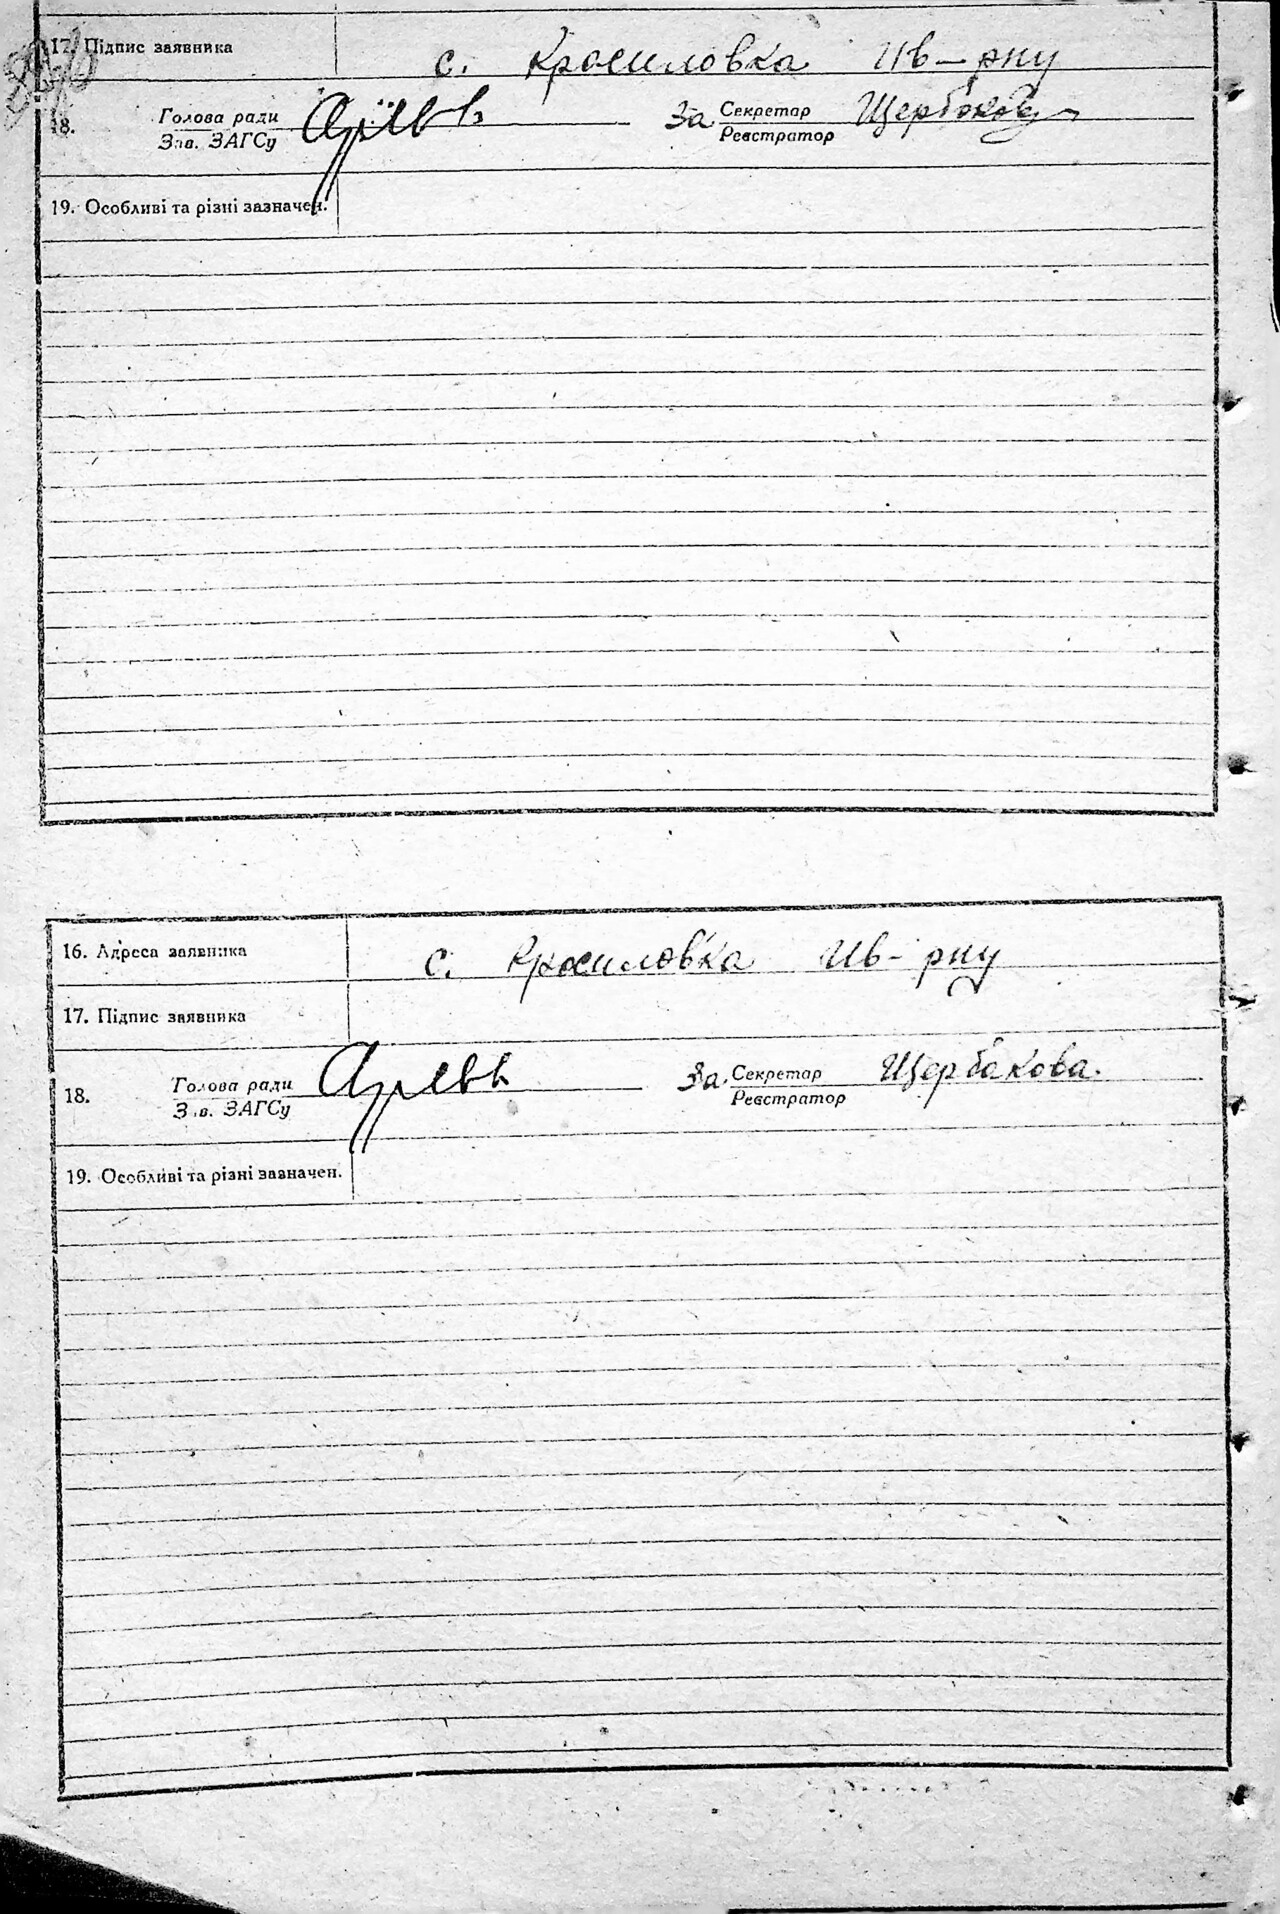 17. Підпис заявника с. Красиловка Ив-рну
18. Голова ради За Секретар Щербакова
Зав. ЗАГСу Реєстратор
19. Особливі та різні зазначен.
16. Адреса заявника с. Красиловка Ив-рну
17. Підпис заявника
18. Голова ради За Секретар Щербакова.
Зав. ЗАГСу Реєстратор
19. Особливі та різні зазначен.